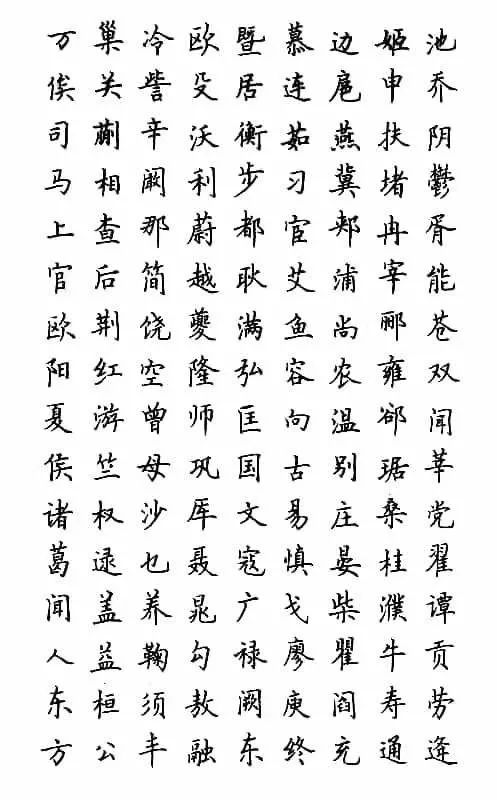 池乔阴鬱胥能苍双闻莘党翟谭贡劳逄
姬申扶堵冉宰郦雍郤琚桑桂濮牛寿通
边扈燕冀郏浦尚农温别庄晏柴瞿阎充
慕连茹习宦艾鱼容向古易慎戈廖庾终
暨居衡步都耿满弘匡国文寇广禄阙东
欧殳沃利蔚越夔隆师巩厍聂晁勾敖融
冷訾辛阚那简饶空曾母沙乜养鞠须丰
巢关蒯相查后荆红游竺权逯盖益桓公
万俟司马上官欧阳夏侯诸葛闻人东方